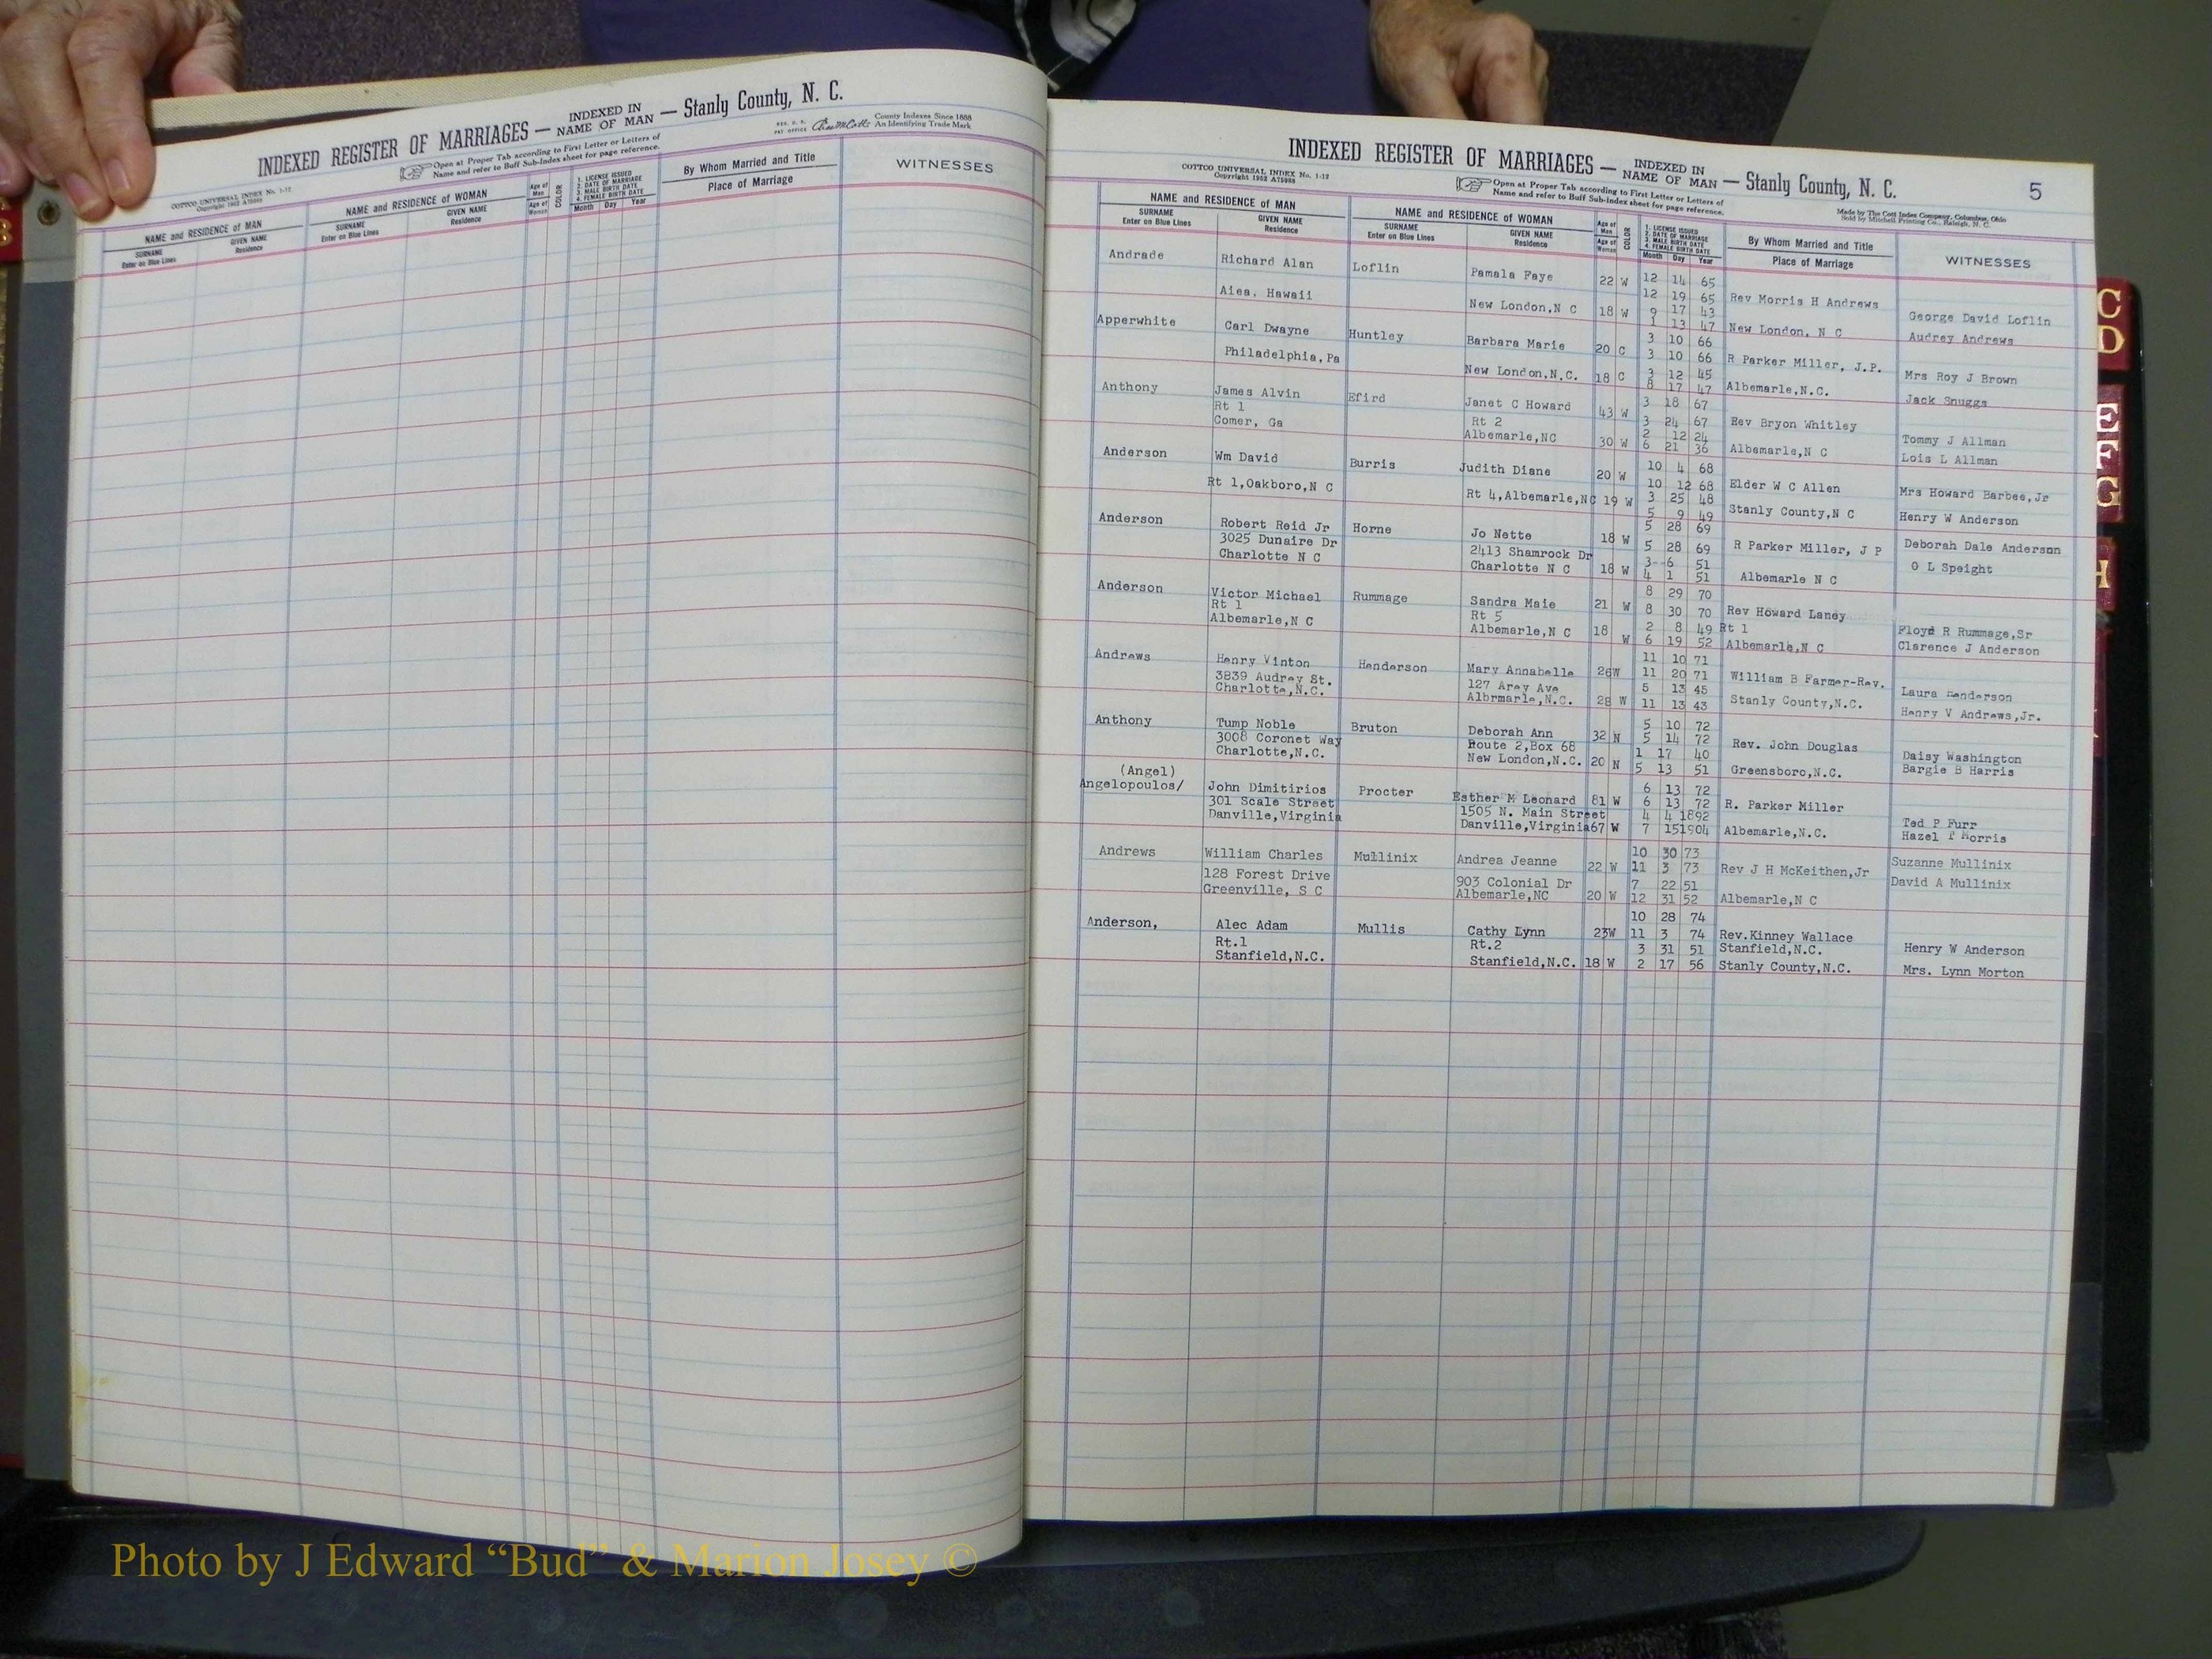 INDEXED REGISTER OF MARRIAGES — INDEXED IN NAME OF MAN — Stanly County, N. C.
REG. U. S. PAT OFFICE
County Indexes Since 1888
An Identifying Trade Mark
COTTCO UNIVERSAL INDEX No. 1-12
Copyright 1952 A75988
Open at Proper Tab according to First Letter or Letters of
Name and refer to Buff Sub-Index sheet for page reference.
NAME and RESIDENCE of MAN
SURNAME
Enter on Blue Lines
GIVEN NAME
Residence
NAME and RESIDENCE of WOMAN
SURNAME
Enter on Blue Lines
GIVEN NAME
Residence
Age of Man
Age of Woman
COLOR
1. LICENSE ISSUED
2. DATE OF MARRIAGE
3. MALE BIRTH DATE
4. FEMALE BIRTH DATE
Month Day Year
By Whom Married and Title
Place of Marriage
WITNESSES
INDEXED REGISTER OF MARRIAGES — INDEXED IN NAME OF MAN — Stanly County, N. C.
5
COTTCO UNIVERSAL INDEX No. 1-12
Copyright 1952 A75988
Open at Proper Tab according to First Letter or Letters of
Name and refer to Buff Sub-Index sheet for page reference.
Made by The Cott Index Company, Columbus, Ohio
Sold by Mitchell Printing Co., Raleigh, N. C.
NAME and RESIDENCE of MAN
SURNAME
Enter on Blue Lines
GIVEN NAME
Residence
NAME and RESIDENCE of WOMAN
SURNAME
Enter on Blue Lines
GIVEN NAME
Residence
Age of Man
Age of Woman
COLOR
1. LICENSE ISSUED
2. DATE OF MARRIAGE
3. MALE BIRTH DATE
4. FEMALE BIRTH DATE
Month Day Year
By Whom Married and Title
Place of Marriage
WITNESSES
Andrade Richard Alan Loflin Pamala Faye 22 W 12 14 65
12 19 65 Rev Morris H Andrews
Aiea, Hawaii New London,N C 18 W 9 17 43 George David Loflin
1 13 47 New London, N C Audrey Andrews
Apperwhite Carl Dwayne Huntley Barbara Marie 20 C 3 10 66
3 10 66 R Parker Miller, J.P.
Philadelphia,Pa New London,N.C. 18 C 3 12 45 Mrs Roy J Brown
8 17 47 Albemarle,N.C. Jack Snuggs
Anthony James Alvin Efird Janet C Howard 43 W 3 18 67
Rt 1 Rt 2 3 24 67 Rev Bryon Whitley
Comer, Ga Albemarle,NC 30 W 2 12 24 Tommy J Allman
6 21 36 Albemarle,N C Lois L Allman
Anderson Wm David Burris Judith Diane 20 W 10 4 68
10 12 68 Elder W C Allen Mrs Howard Barbee,Jr
Rt 1,Oakboro,N C Rt 4,Albemarle,NC 19 W 3 25 48
5 9 49 Stanly County,N C Henry W Anderson
Anderson Robert Reid Jr Horne Jo Nette 18 W 5 28 69
3025 Dunaire Dr 2413 Shamrock Dr 5 28 69 R Parker Miller, J P Deborah Dale Anderson
Charlotte N C Charlotte N C 18 W 3--6 51 O L Speight
4 1 51 Albemarle N C
Anderson Victor Michael Rummage Sandra Maie 21 W 8 29 70
Rt 1 Rt 5 8 30 70 Rev Howard Laney
Albemarle,N C Albemarle,N C 18 2 8 49 Rt 1 Floyd R Rummage,Sr
W 6 19 52 Albemarle,N C Clarence J Anderson
Andrews Henry Vinton Henderson Mary Annabelle 26W 11 10 71
3839 Audrey St. 127 Arey Ave 11 20 71 William B Farmer-Rev.
Charlotte,N.C. Albrmarle,N.C. 28 W 5 13 45 Laura Henderson
11 13 43 Stanly County,N.C. Henry V Andrews,Jr.
Anthony Tump Noble Bruton Deborah Ann 32 N 5 10 72
3008 Coronet Way Route 2,Box 68 5 14 72 Rev. John Douglas
Charlotte,N.C. New London,N.C. 20 N 1 17 40 Daisy Washington
5 13 51 Greensboro,N.C. Bargie B Harris
(Angel)
Angelopoulos/ John Dimitirios Procter Esther M Leonard 81 W 6 13 72
301 Scale Street 1505 N. Main Street 6 13 72 R. Parker Miller
Danville,Virginia Danville,Virginia67 W 4 4 1892 Ted P Furr
7 151904 Albemarle,N.C. Hazel P Morris
Andrews William Charles Mullinix Andrea Jeanne 22 W 10 30 73 Suzanne Mullinix
128 Forest Drive 903 Colonial Dr 11 3 73 Rev J H McKeithen,Jr David A Mullinix
Greenville, S C Albemarle,NC 20 W 7 22 51
12 31 52 Albemarle,N C
Anderson, Alec Adam Mullis Cathy Lynn 23W 10 28 74
Rt.1 Rt.2 11 3 74 Rev.Kinney Wallace
Stanfield,N.C. Stanfield,N.C. 18 W 3 31 51 Stanfield,N.C. Henry W Anderson
2 17 56 Stanly County,N.C. Mrs. Lynn Morton
C
D
E
F
G
H
B
Photo by J Edward “Bud” & Marion Josey ©